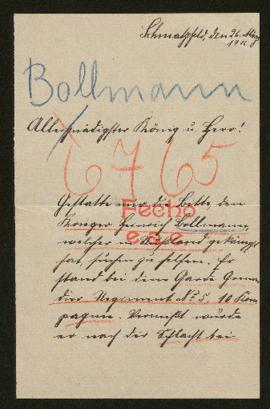 Schmatzfeld, den 26. März
Bollmann
Allergnädigster König u. Herr!
6765
Gestatte mir die Bitte den
Krieger Heinrich Bollmann,
Fecho
welcher in Rußland gekämpft
hat, suchen zu helfen. Er
stand bei dem Garde Grena
dier Regiment No 5, 10 Kom
pagnie. Vermißt wurde
er nach der Schlacht bei